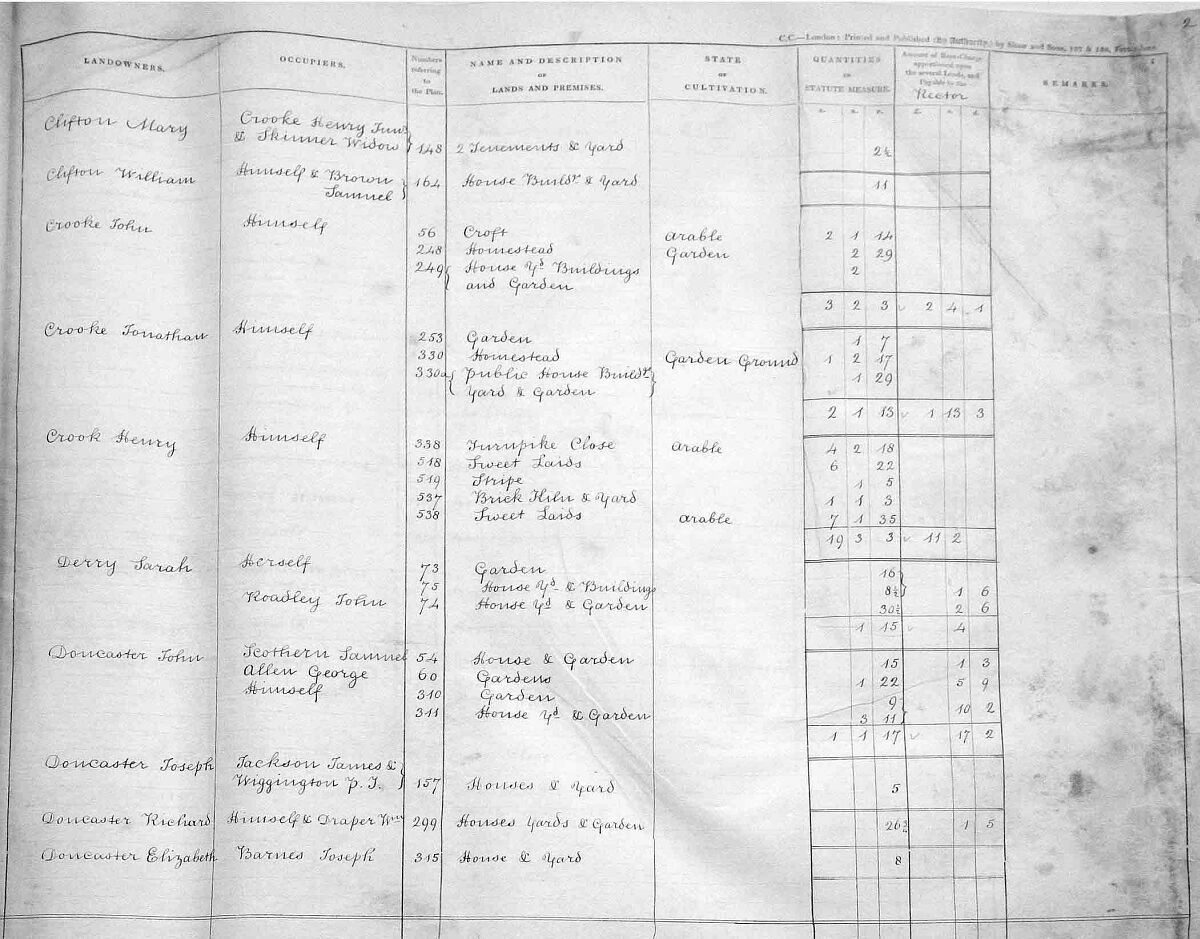 2
C.C.—London: Printed and Published (By Authority,) by Shaw and Sons, 137 & 138,
LANDOWNERS. OCCUPIERS. Numbers referring to the Plan. NAME AND DESCRIPTION OF LANDS AND PREMISES. STATE OF CULTIVATION. QUANTITIES IN STATUTE MEASURE. Amount of Rent-Charge apportioned upon the several Lands, and Payable to the Rector REMARKS.
A. R. P. £. s. d.
Clifton Mary Crooke Henry Junr
& Skinner Widow } 148 2 Tenements & Yard 2½
Clifton William Himself & Brown
Samuel } 164 House Buildgs & Yard 11
Crooke John Himself
56 Croft arable 2 1 14
248 Homestead Garden 2 29
249 { House Yd Buildings 2
and Garden
3 2 3 2 4 1
Crooke Jonathan Himself
253 Garden 1 7
330 Homestead Garden Ground 1 2 17
330a { Public House Buildgs } 1 29
Yard & Garden
2 1 13 1 13 3
Crook Henry Himself 338 Turnpike Close arable 4 2 18
518 Sweet Laids 6 22
519 Stripe 1 5
537 Brick Kiln & Yard 1 1 3
538 Sweet Laids arable 7 1 35
19 3 3 11 2
Derry Sarah Herself 73 Garden 16
75 House Yd & Buildings 8½ } 1 6
Roadley John 74 House Yd & Garden 30½ 2 6
1 15 4
Doncaster John Scothern Samuel 54 House & Garden 15 1 3
Allen George 60 Gardens 1 22 5 9
Himself 310 Garden 9
311 House Yd & Garden 3 11 } 10 2
1 1 17 17 2
Doncaster Joseph Jackson James &
Wiggington P. J. } 157 Houses & Yard 5
Doncaster Richard Himself & Draper Wm 299 Houses Yards & Garden 26¾ 1 5
Doncaster Elizabeth Barnes Joseph 315 House & Yard 8